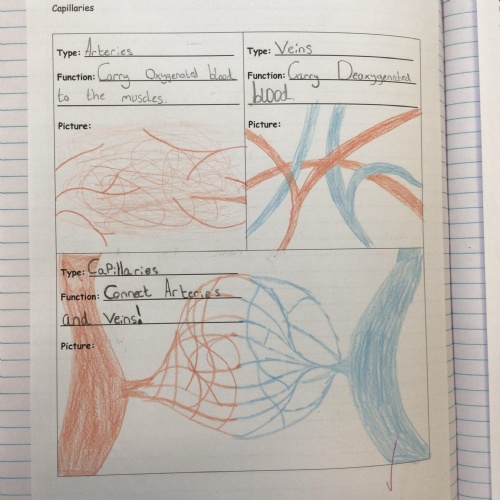 Capillaries
Type: Arteries
Function: Carry Oxygenated blood
to the muscles.
Picture:
Type: Veins
Function: Carry Deoxygenated
blood.
Picture:
Type: Capillaries
Function: Connect Arteries
and Veins!
Picture: